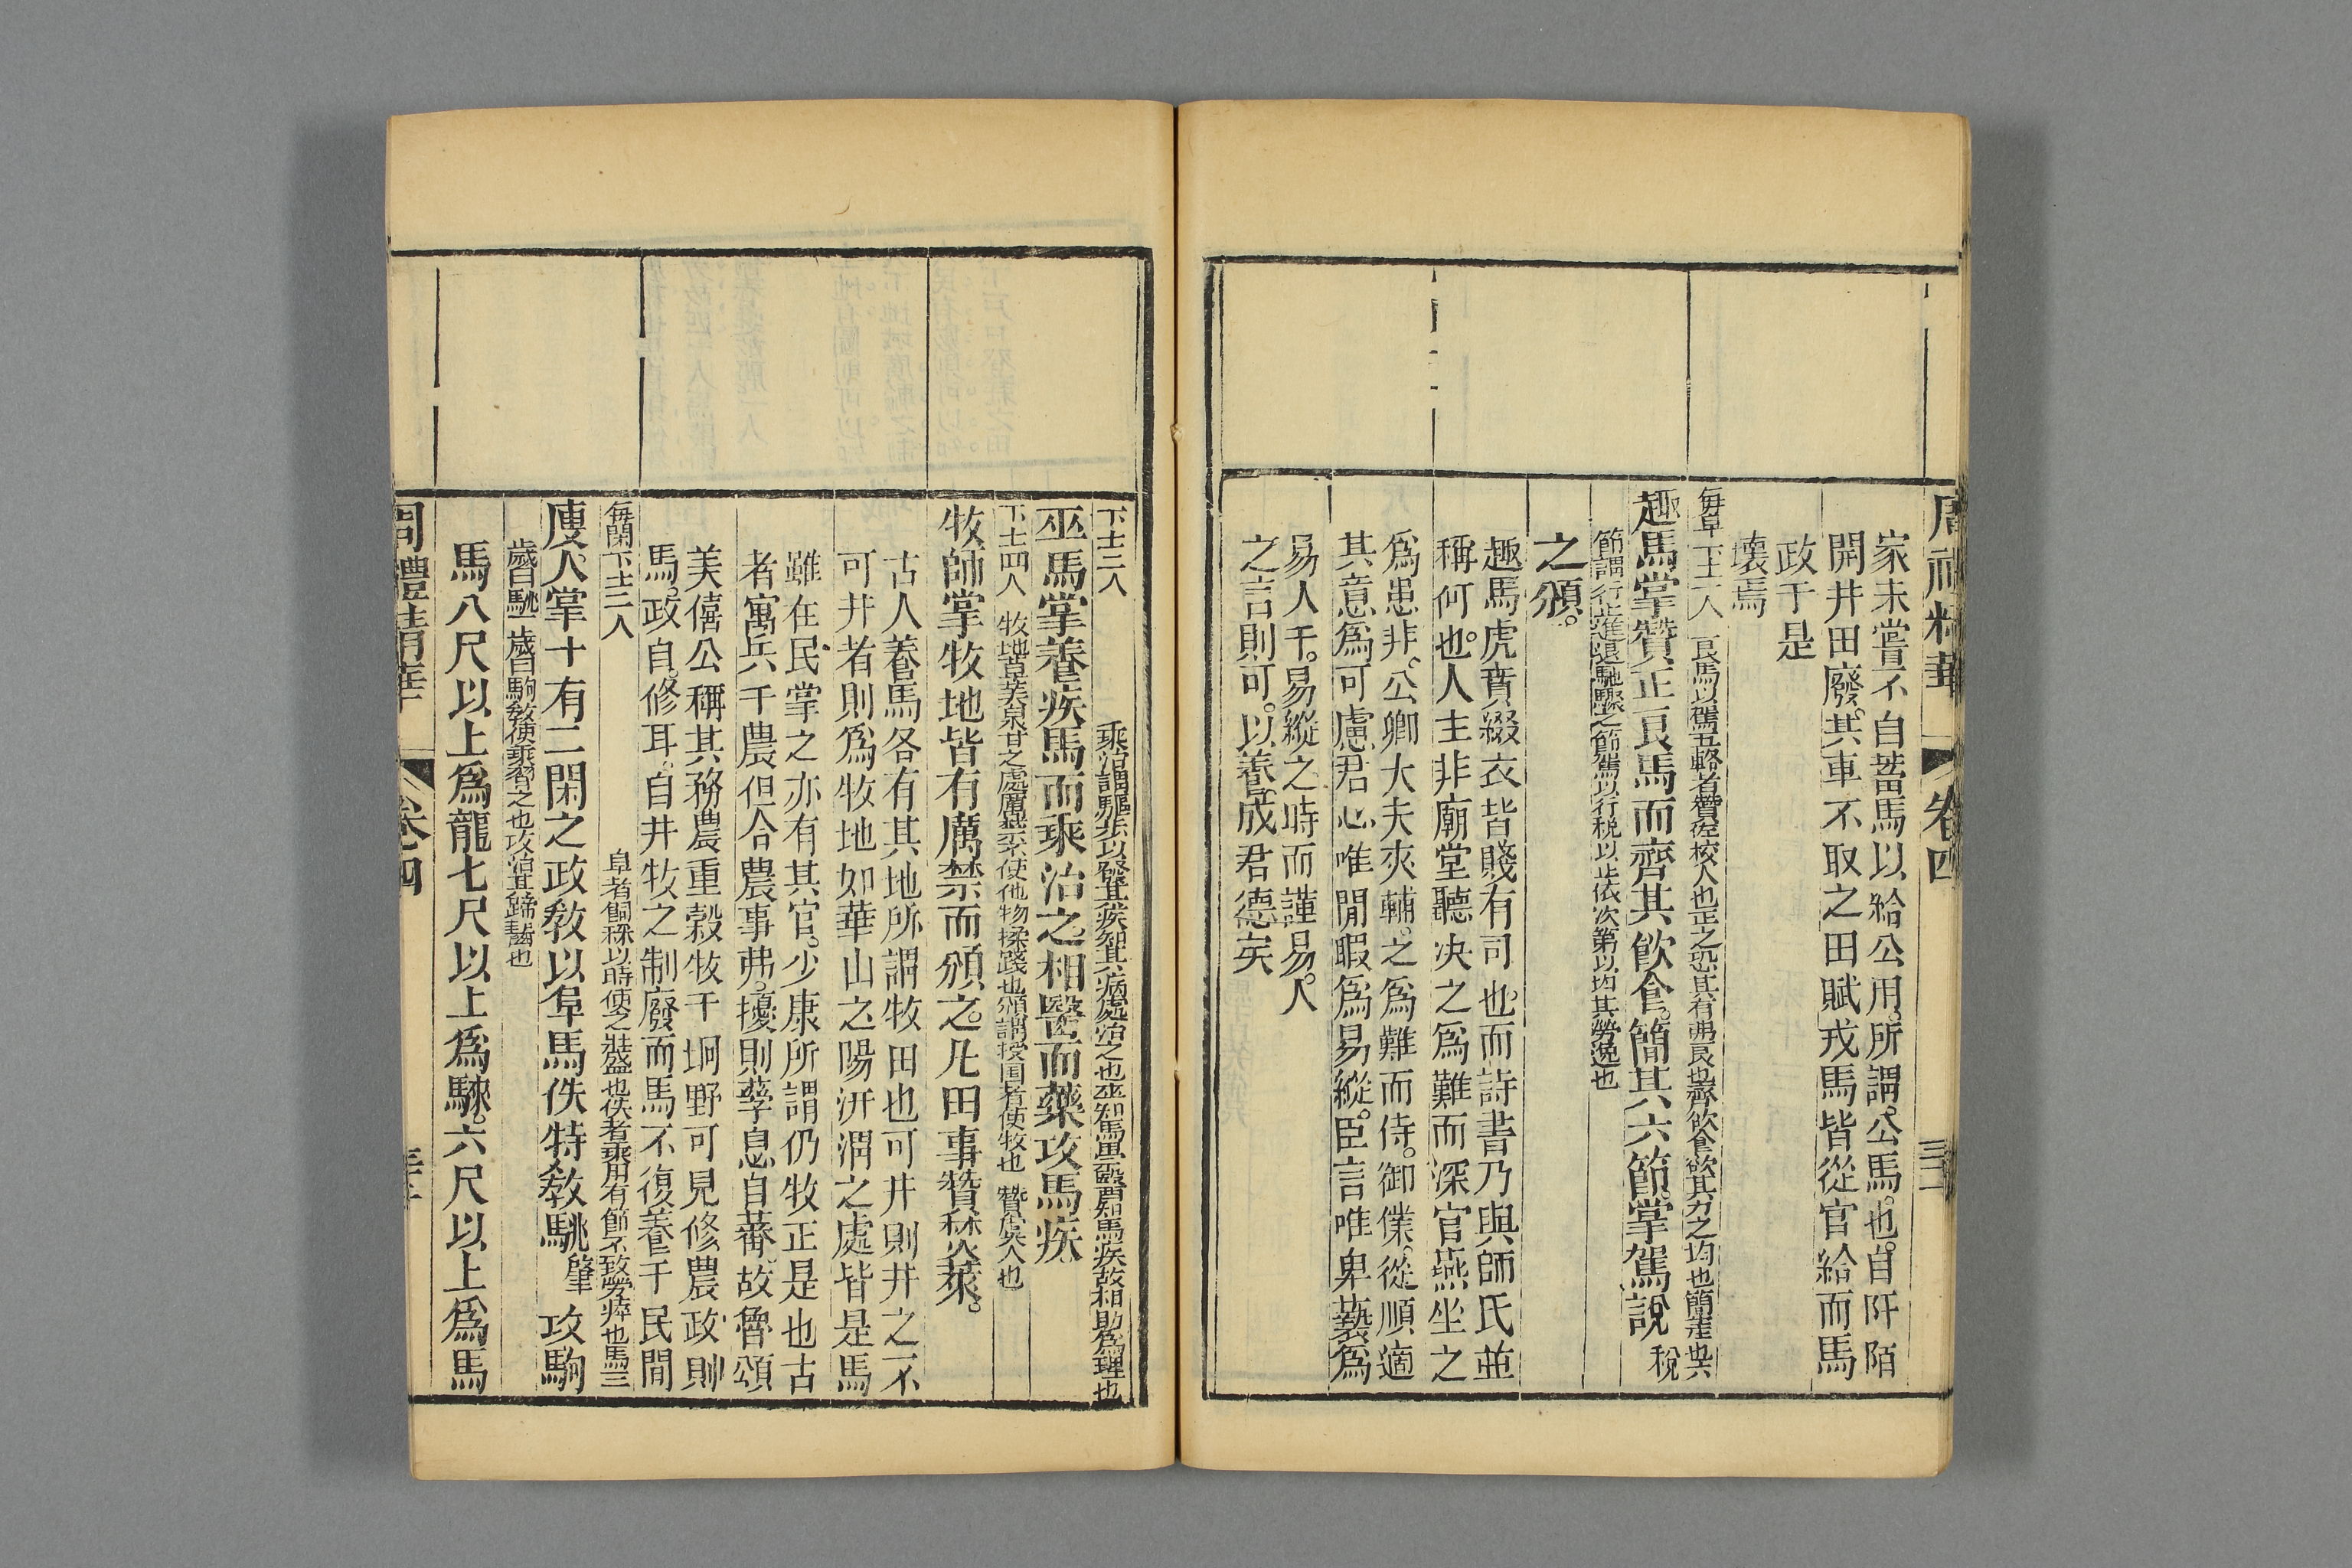 周禮精華 卷四
家未嘗不自蓄馬以給公用所謂公馬也自阡陌
開井田廢其車不取之田賦戎馬皆從官給而馬
政于是
壞焉
每阜下士一人 良馬以駕五輅者贊佐校人也正之恐其有弗良也齊飲食欲其力之均也簡差也六
趣馬掌贊正良馬而齊其飲食簡其六節掌駕說稅
節謂行止進退馳驟之節駕以行稅以止依次第以均其勞逸也
之頒
趣馬虎賁綴衣皆賤有司也而詩書乃與師氏並
稱何也人主非廟堂聽決之為難而深宮燕坐之
為患非公卿大夫夾輔之為難而侍御僕從順適
其意為可慮君心唯閒暇為易縱臣言唯卑藝為
易人于易縱之時而謹易人
之言則可以養成君德矣
下士二人 乘治謂驅步以發其疾知其病處治之也巫知馬祟醫知馬疾故相助為理也
巫馬掌養疾馬而乘治之相醫而藥攻馬疾
下士四人 牧地皆草美泉甘之處厲禁不使他物揉踐也頒謂授圉者使牧也 贊虞人也
牧師掌牧地皆有厲禁而頒之凡田事贊焚萊
古人養馬各有其地所謂牧田也可井則井之不
可井者則為牧地如華山之陽汧渭之處皆是馬
雖在民掌之亦有其官少康所謂仍牧正是也古
者寓兵于農但令農事弗擾則孳息自蕃故魯頌
美僖公稱其務農重穀牧于坰野可見修農政則
馬政自修耳自井牧之制廢而馬不復養于民間
每閑下士二人 阜者飼秣以時使之壯盛也佚者乘用有節不致勞瘁也馬三
廋人掌十有二閑之政教以阜馬佚特教駣肇攻駒
歲曰駣二歲曰駒教使乘習之也攻治其蹄齧也
馬八尺以上為龍七尺以上為騋六尺以上為馬
周禮精華 卷四